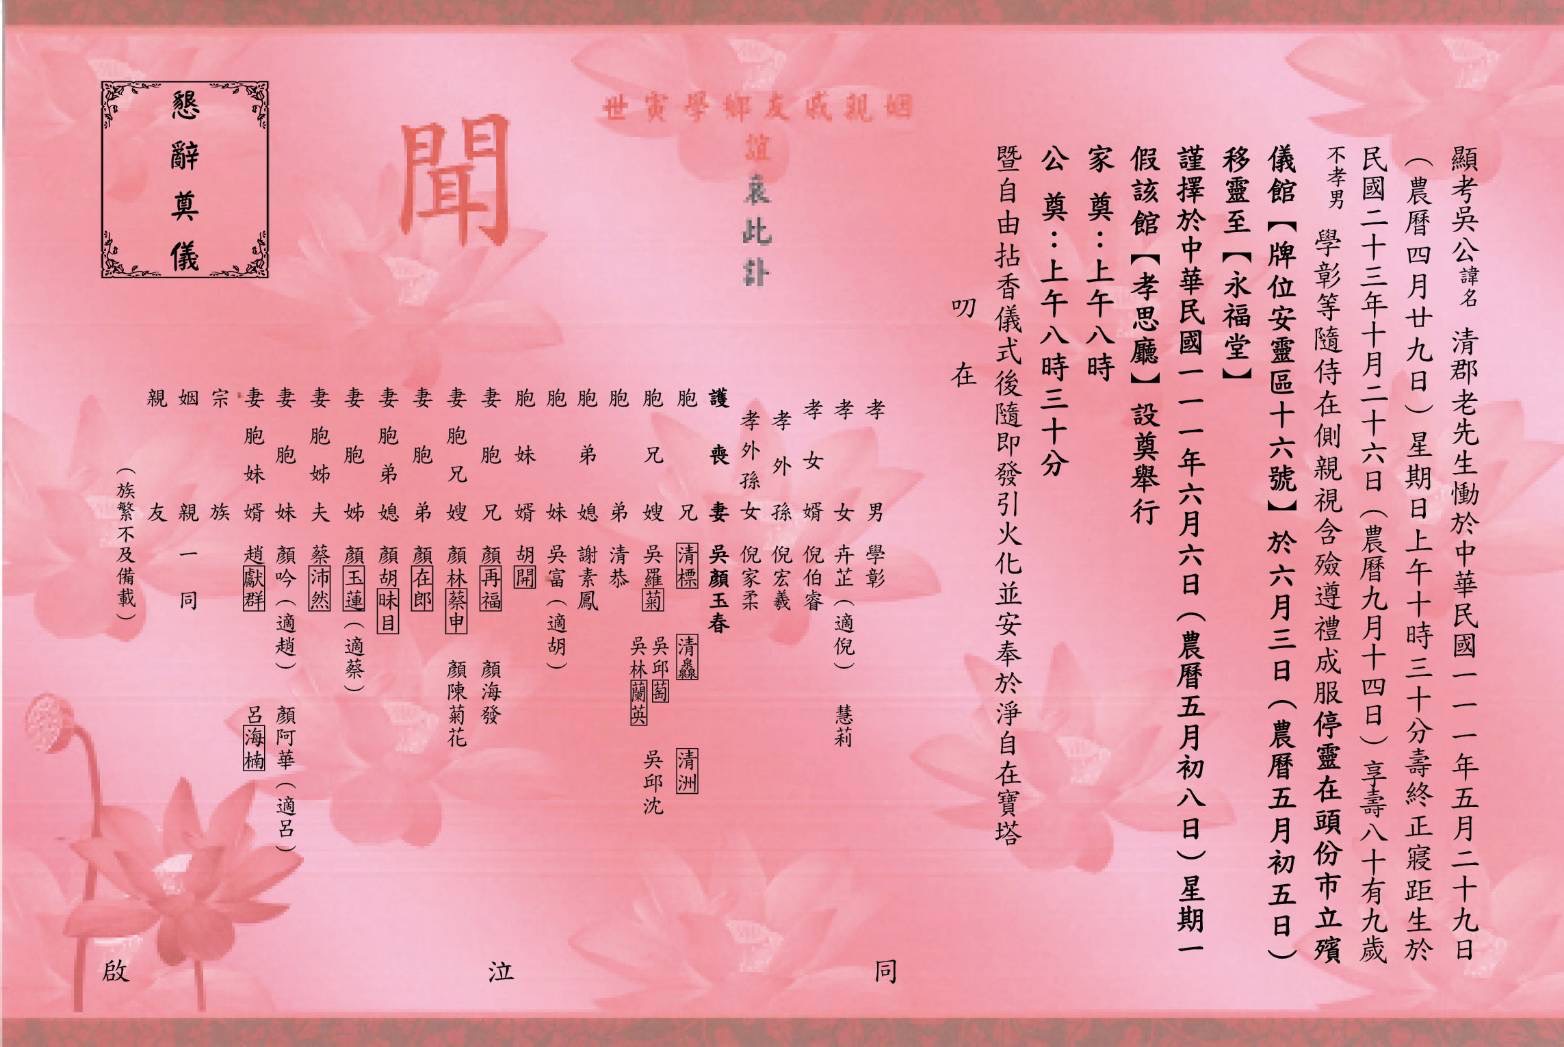 顯考吳公諱名 清郡老先生慟於中華民國一一一年五月二十九日
(農曆四月廿九日)星期日上午十時三十分壽終正寢距生於
民國二十三年十月二十六日(農曆九月十四日)享壽八十有九歲
不孝男 學彰等隨侍在側親視含殮遵禮成服停靈在頭份市立殯
儀館【牌位安靈區十六號】於六月三日(農曆五月初五日)
移靈至【永福堂】
謹擇於中華民國一一一年六月六日(農曆五月初八日)星期一
假該館【孝思廳】設奠舉行
家 奠:上午八時
公 奠:上午八時三十分
暨自由拈香儀式後隨即發引火化並安奉於淨自在寶塔
叨 在
世寅學鄉友戚親姻
誼
哀此訃
聞
孝男 學彰
孝女 卉芷(適倪) 慧莉
孝女婿 倪伯睿
孝外孫 倪宏羲
孝外孫女 倪家柔
護喪妻 吳顏玉春
胞兄 清標 清鱻 清洲
胞兄嫂 吳羅菊 吳邱蔔 吳林蘭英 吳邱沈
胞弟 清恭
胞弟媳 謝素鳳
胞妹 吳富(適胡)
胞妹婿 胡開
妻胞兄 顏再福 顏海發
妻胞兄嫂 顏林蔡申 顏陳菊花
妻胞弟 顏在郎
妻胞弟媳 顏胡昧目
妻胞姊 顏玉蓮(適蔡)
妻胞姊夫 蔡沛然
妻胞妹 顏吟(適趙) 顏阿華(適呂)
妻胞妹婿 趙獻群 呂海楠
宗族
姻親一同
親友
(族繁不及備載)
同 泣 啟
懇辭奠儀